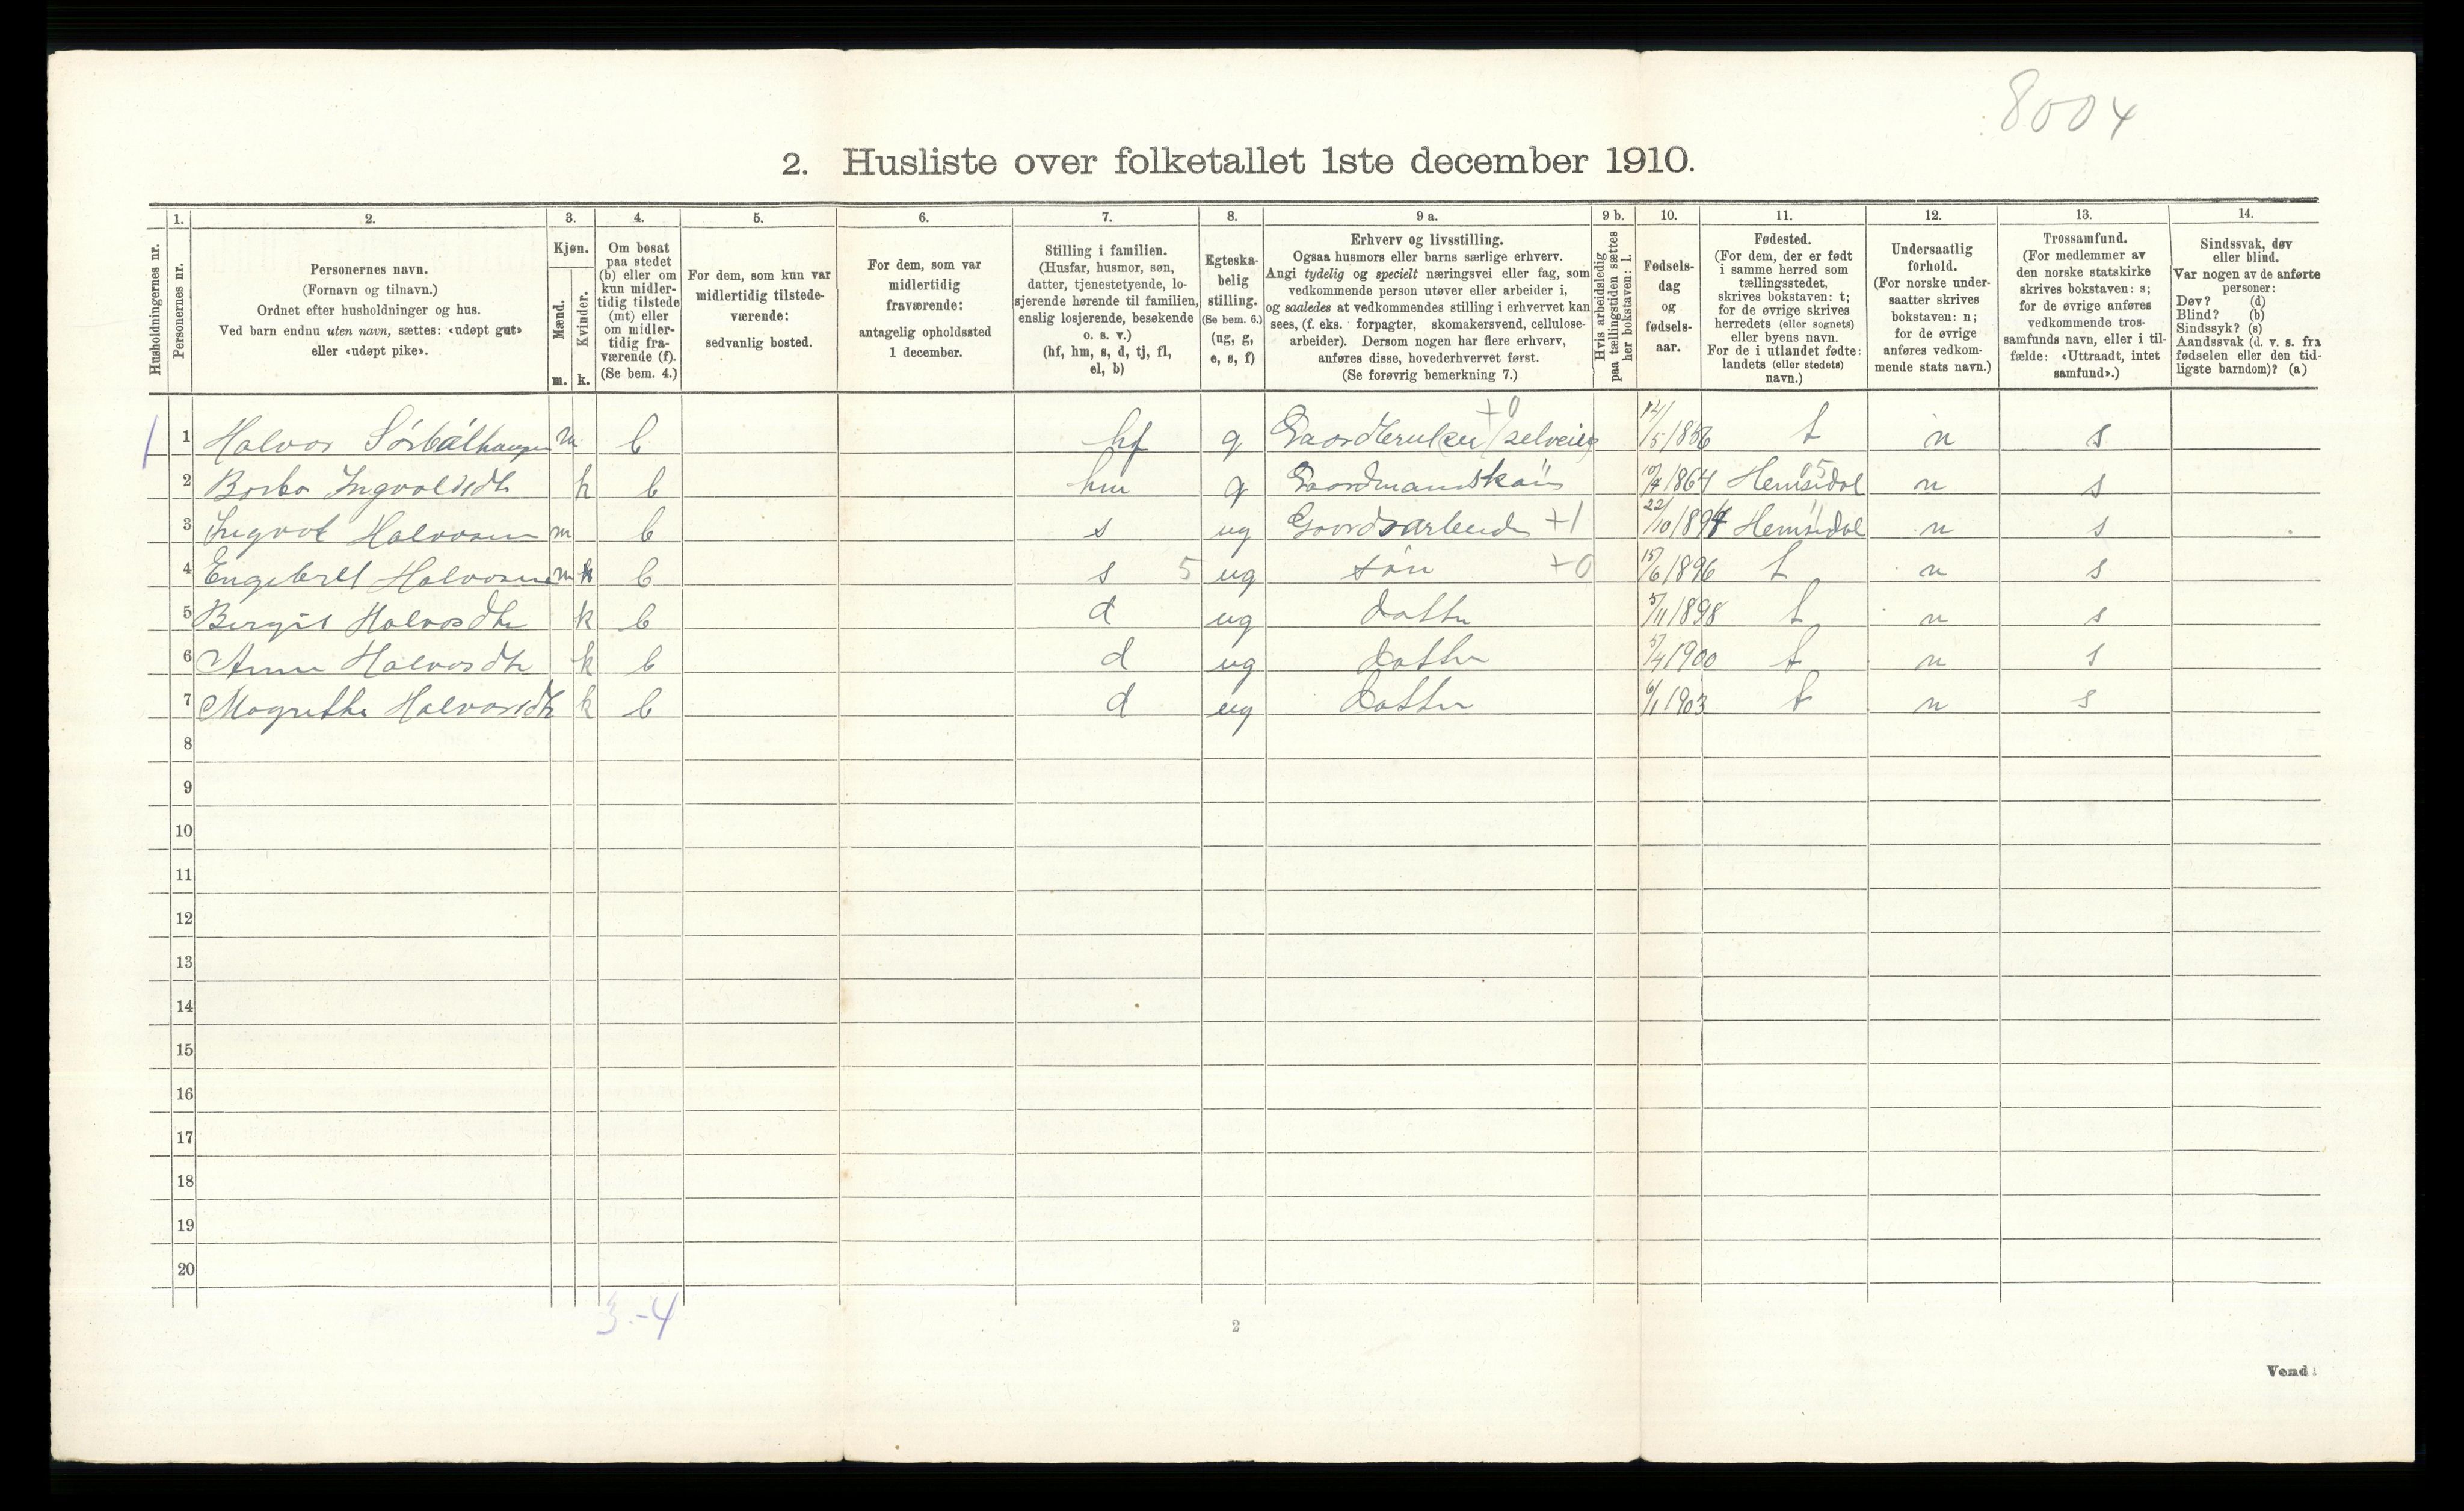 8004
2. Husliste over folketallet 1ste december 1910.
Husholdningernes nr.
1.
Personernes nr.
2.
Personernes navn.
(Fornavn og tilnavn.)
Ordnet efter husholdninger og hus.
Ved barn endnu uten navn, sættes: «udøpt gut»
eller «udøpt pike».
3.
Kjøn.
Mænd.
Kvinder.
m. k.
4.
Om bosat
paa stedet
(b) eller om
kun midler-
tidig tilstede
(mt) eller
om midler-
tidig fra-
værende (f).
(Se bem. 4.)
5.
For dem, som kun var
midlertidig tilstede-
værende:
sedvanlig bosted.
6.
For dem, som var
midlertidig
fraværende:
antagelig opholdssted
1 december.
7.
Stilling i familien.
(Husfar, husmor, søn,
datter, tjenestetyende, lo-
sjerende hørende til familien,
enslig losjerende, besøkende
o. s. v.)
(hf, hm, s, d, tj, fl,
el, b)
8.
Egteska-
belig
stilling.
(Se bem. 6.)
(ug, g,
e, s, f)
9 a.
Erhverv og livsstilling.
Ogsaa husmors eller barns særlige erhverv.
Angi tydelig og specielt næringsvei eller fag, som
vedkommende person utøver eller arbeider i,
og saaledes at vedkommendes stilling i erhvervet kan
sees, (f. eks. forpagter, skomakersvend, cellulose-
arbeider). Dersom nogen har flere erhverv,
anføres disse, hovederhvervet først.
(Se forøvrig bemerkning 7.)
9 b.
Hvis arbeidsledig
paa tællingstiden sættes
her bokstaven: l.
10.
Fødsels-
dag
og
fødsels-
aar.
11.
Fødested.
(For dem, der er født
i samme herred som
tællingsstedet,
skrives bokstaven: t;
for de øvrige skrives
herredets (eller sognets)
eller byens navn.
For de i utlandet fødte:
landets (eller stedets)
navn.)
12.
Undersaatlig
forhold.
(For norske under-
saatter skrives
bokstaven: n;
for de øvrige
anføres vedkom-
mende stats navn.)
13.
Trossamfund.
(For medlemmer av
den norske statskirke
skrives bokstaven: s;
for de øvrige anføres
vedkommende tros-
samfunds navn, eller i til-
fælde: «Uttraadt, intet
samfund».)
14.
Sindssvak, døv
eller blind.
Var nogen av de anførte
personer:
Døv? (d)
Blind? (b)
Sindssyk? (s)
Aandssvak (d. v. s. fra
fødselen eller den tid-
ligste barndom)? (a)
1 1 Halvor Sørbølhaugen m b hf g Gaardbruker (selveier) +0 14/5 1856 t n s
2 Barbo Ingvaldsdtr k b hm g Gaardmandskone 1864 Hemsedal 05 n s
3 Ingvol Halvorsen m b s ug Gaardsarbeider +1 22/10 1894 Hemsedal n s
4 Engebret Halvorsen m k b s 5 ug søn +0 15/6 1896 t n s
5 Bergit Halvorsdtr k b d ug datter 5/11 1898 t n s
6 Anne Halvorsdtr k b d ug datter 5/4 1900 t n s
7 Magrethe Halvorsdtr k b d ug datter 6/1 1903 t n s
8
9
10
11
12
13
14
15
16
17
18
19
20
3-4
2
Vend!